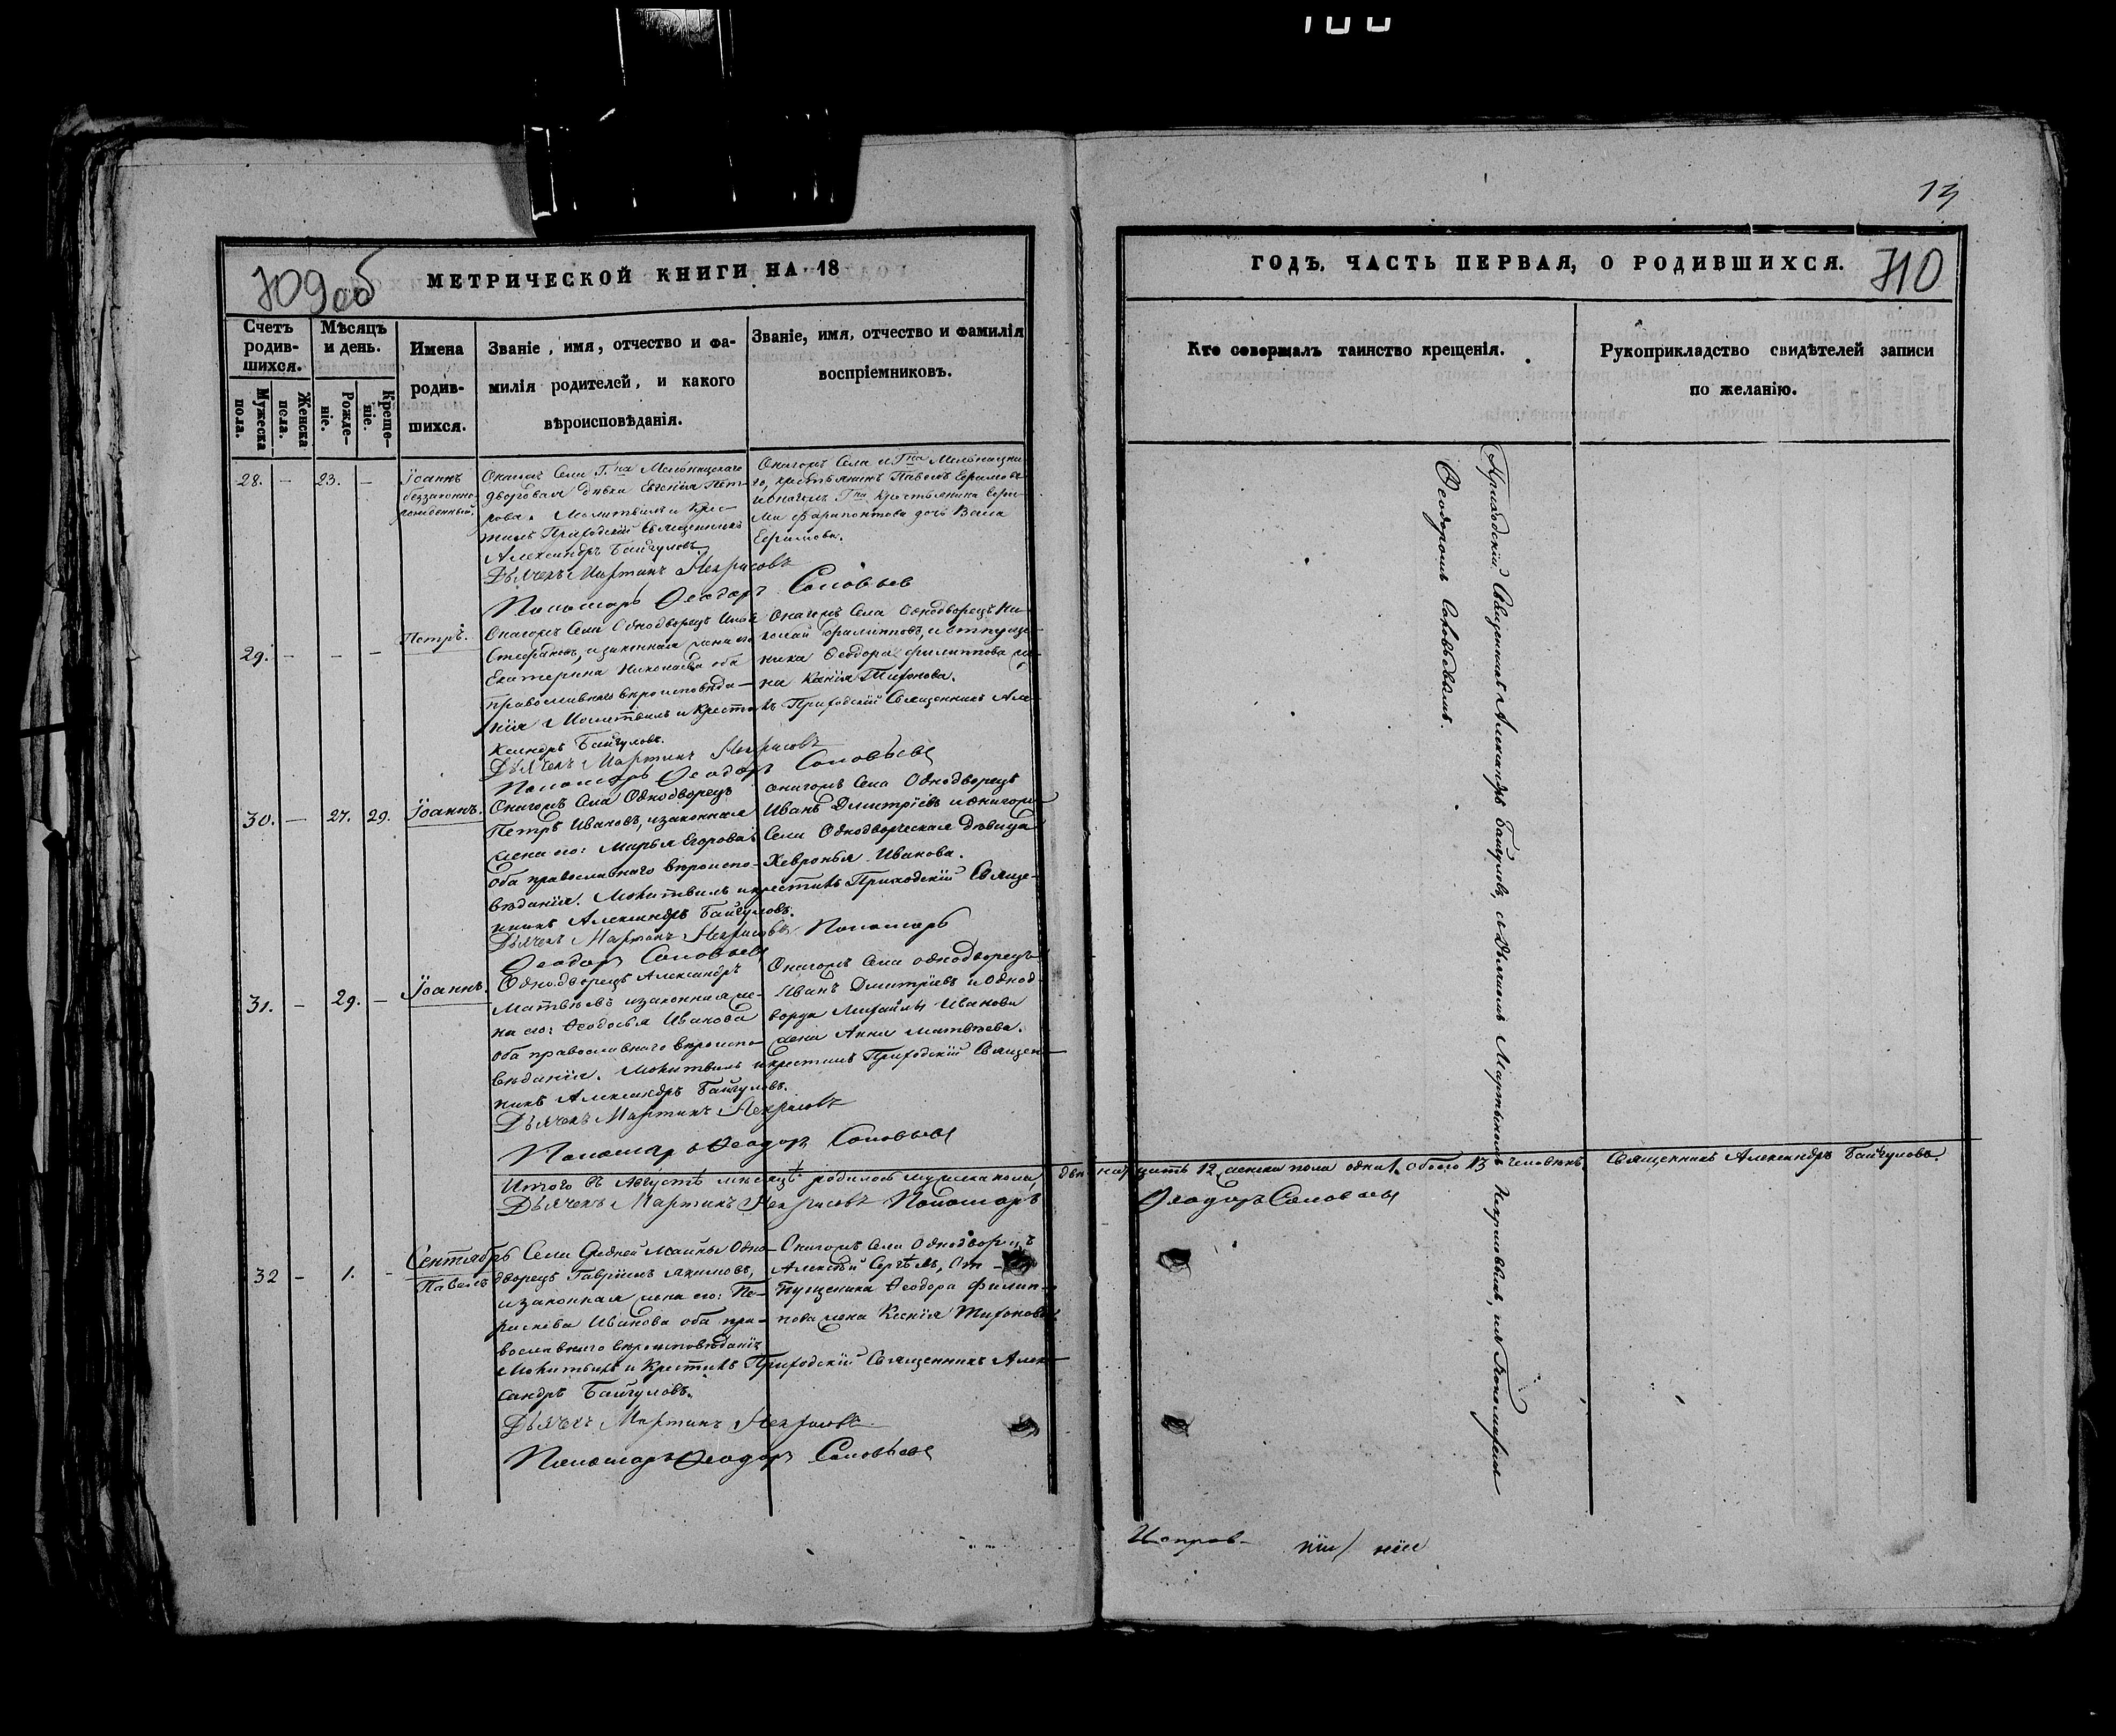 13
709 об
МЕТРИЧЕСКОЙ КНИГИ НА 18
ГОДЪ, ЧАСТЬ ПЕРВАЯ, О РОДИВШИХСЯ.
710
Счетъ родив-
шихся.
Мужеска пола.
Женска пола.
Мѣсяцъ и день.
Рожде-
ніе.
Креще-
ніе.
Имена
родив-
шихся.
Званіе, имя, отчество и фа-
милія родителей, и какого
вѣроисповѣданія.
Званіе, имя, отчество и фамилія
воспріемниковъ.
Кто совершалъ таинство крещенія.
Рукоприкладство свидѣтелей записи
по желанію.
28. – 23. –
Іоаннъ
беззаконно-
рожденный.
дворовая дѣвка Евгенія Пет-
рова. Молитвилъ и Крес-
тилъ Приходскій Священникъ
Александръ Байгуловъ
Дьячекъ Мартинъ Некрасовъ
Пономарь Ѳеодоръ Соловьевъ
29. – – –
Петръ.
Онагожъ Села Однодворецъ
Стефановъ, и законная жена его
Екатерина Николаева оба
православнаго вѣроисповѣда-
нія Молитвилъ и Крестилъ Приходскій Священникъ Але-
ксандръ Байгуловъ.
Дьячекъ Мартинъ Некрасовъ
Пономарь Ѳеодоръ Соловьевъ
Онагожъ Села Однодворецъ Ни-
колай Филипповъ, и отпуще-
ника Ѳеодора Филиппова же-
на Ксенія Тихонова.
30. – 27. 29.
Іоаннъ.
Онагожъ Села Однодворецъ
Петръ Ивановъ, и законная
жена его: Марья Егорова
оба православнаго вѣроиспо-
вѣданія. Молитвилъ и крестилъ Приходскій Священ-
никъ Александръ Байгуловъ.
Дьячекъ Мартинъ Некрасовъ Пономарь
Ѳеодоръ Соловьевъ
Онагожъ Села Однодворецъ
Иванъ Дмитріевъ и онагожъ
Села Однодворческая Дѣвица
Хевронья Иванова.
31. – 29. –
Іоаннъ.
Однодворецъ Александръ
Матвѣевъ и законная же-
на его: Ѳеодосья Иванова
оба православнаго вѣроиспо-
вѣданія. Молитвилъ и крестилъ Приходскій Священ-
никъ Александръ Байгуловъ.
Дьячекъ Мартинъ Некрасовъ
Пономарь Ѳеодоръ Соловьевъ
Онагожъ Села однодворецъ
Иванъ Дмитріевъ и Однод-
ворца Михайлы Иванова
жена Анна Матвѣева.
Итого въ Августѣ мѣсяцѣ родилось мужеска пола двенадцать 12, женска пола одна 1. обоего 13 человѣкъ. Священникъ Александръ Байгуловъ.
Дьячекъ Мартинъ Некрасовъ Пономарь Ѳеодоръ Соловьевъ
Сентябрь
32 – 1. –
Павелъ
Села Средней Майны Одно-
дворецъ Гавріилъ Якимовъ,
и законная жена его: Па-
раскева Иванова оба пра-
вославнаго вѣроисповѣданія
Молитвилъ и Крестилъ Приходскій Священникъ Алек-
сандръ Байгуловъ.
Дьячекъ Мартинъ Некрасовъ
Пономарь Ѳеодоръ Соловьевъ
Онагожъ Села Однодворецъ
Алексѣй Сергѣевъ, От-
пущеника Ѳеодора Филип-
пова жена Ксенія Тихонова
Приходскій Священникъ Александръ Байгуловъ, съ Дьячкомъ Мартиномъ Некрасовымъ, и съ Пономаремъ
Ѳеодоромъ Соловьевымъ.